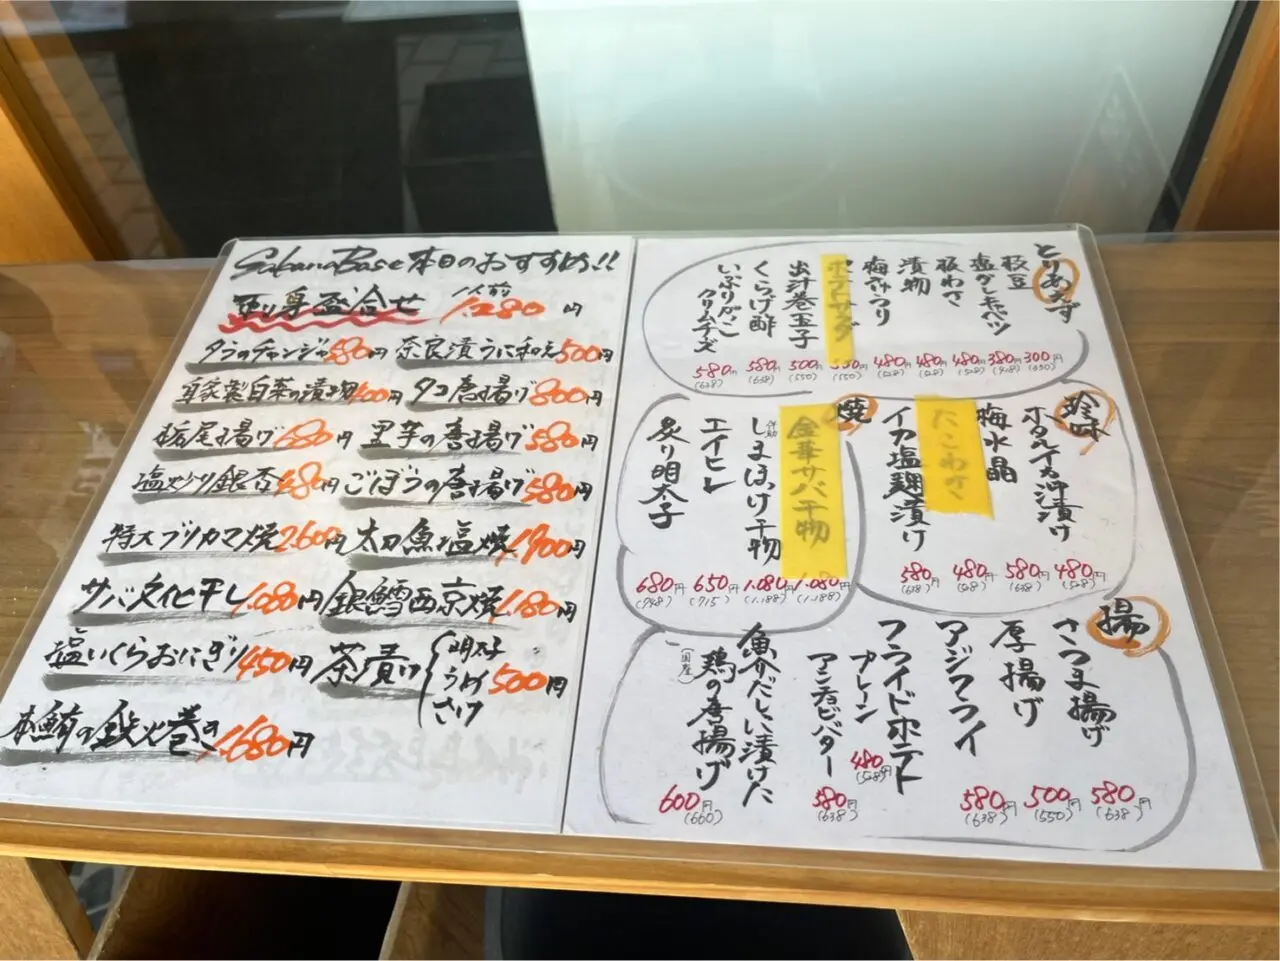 SakanaBase本日のおすすめ!!
刺し身盛合せ 一人前 1.280円
タラのチャンジャ580円 奈良漬うに和え500円
自家製白菜の漬物400円 タコ唐揚げ800円
栃尾揚げ680円 里芋の唐揚げ580円
塩炒り銀杏480円 ごぼうの唐揚げ580円
特大ブリカマ焼2.600円 太刀魚塩焼1.900円
サバ文化干し1.080円 銀鱈西京焼1.180円
塩いくらおにぎり450円 茶漬け 明太子 うめ さけ 500円
本鮪の鉄火巻き1.680円
とりあえず
枝豆 300円
塩ダレキャベツ 380円
板わさ 480円 (528)
漬物 480円 (528)
梅きゅうり 480円 (528)
ポテトサラダ 550円 (550)
出汁巻玉子 500円 (550)
くらげ酢 580円 (638)
いぶりがっこクリームチーズ 580円 (638)
珍味
ホタルイカ沖漬け 480円 (528)
梅水晶 580円 (638)
たこわさ 480円 (528)
イカ塩麹漬け 580円 (638)
焼
金華サバ干物 1.080円 (1.188)
しまほっけ干物 1.080円 (1.188)
エイヒレ 650円 (715)
炙り明太子 680円 (748)
揚
さつま揚げ 580円 (638)
厚揚げ 500円 (550)
アジフライ 580円 (638)
フライドポテト
プレーン 480円 (528)
アンチョビバター 580円 (638)
魚介だしに漬けた
鶏の唐揚げ 600円 (660)
(国産)